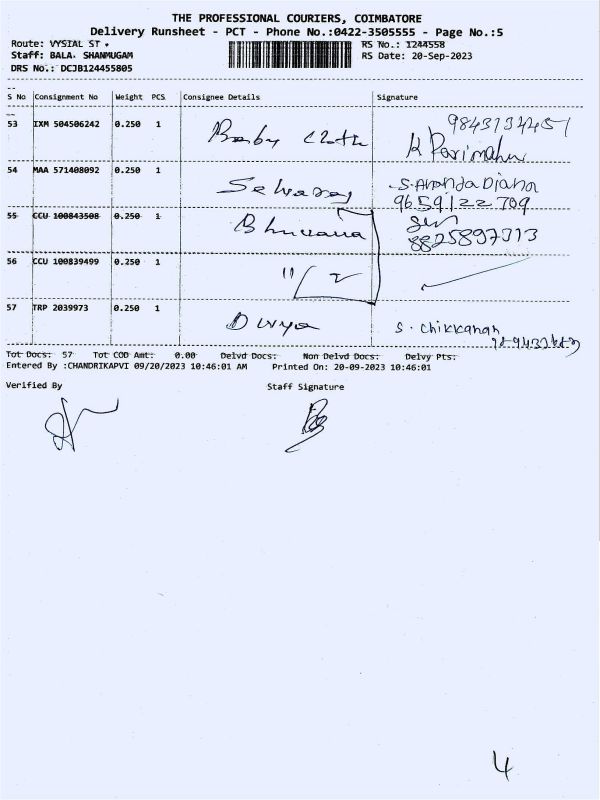 THE PROFESSIONAL COURIERS, COIMBATORE
Delivery Runsheet - PCT - Phone No.:0422-3505555 - Page No.:5
Route: VYSIAL ST . RS No.: 1244558
Staff: BALA. SHANMUGAM RS Date: 20-Sep-2023
DRS No.: DCJB124455805
S No Consignment No Weight PCS Consignee Details Signature
53 IXM 504506242 0.250 1 Baby Cloth 9843134451
K Parimalam
54 MAA 571408092 0.250 1 Selvaraj S. Ananda Diana
9659122709
55 CCU 100843508 0.250 1 Bhuvana
8825897313
56 CCU 100839499 0.250 1 " / 2
57 TRP 2039973 0.250 1 Divya S. Chikkanan
Tot Docs: 57 Tot COD Amt: 0.00 Delvd Docs: Non Delvd Docs: Delvy Pts:
Entered By :CHANDRIKAPVI 09/20/2023 10:46:01 AM Printed On: 20-09-2023 10:46:01
Verified By Staff Signature
4